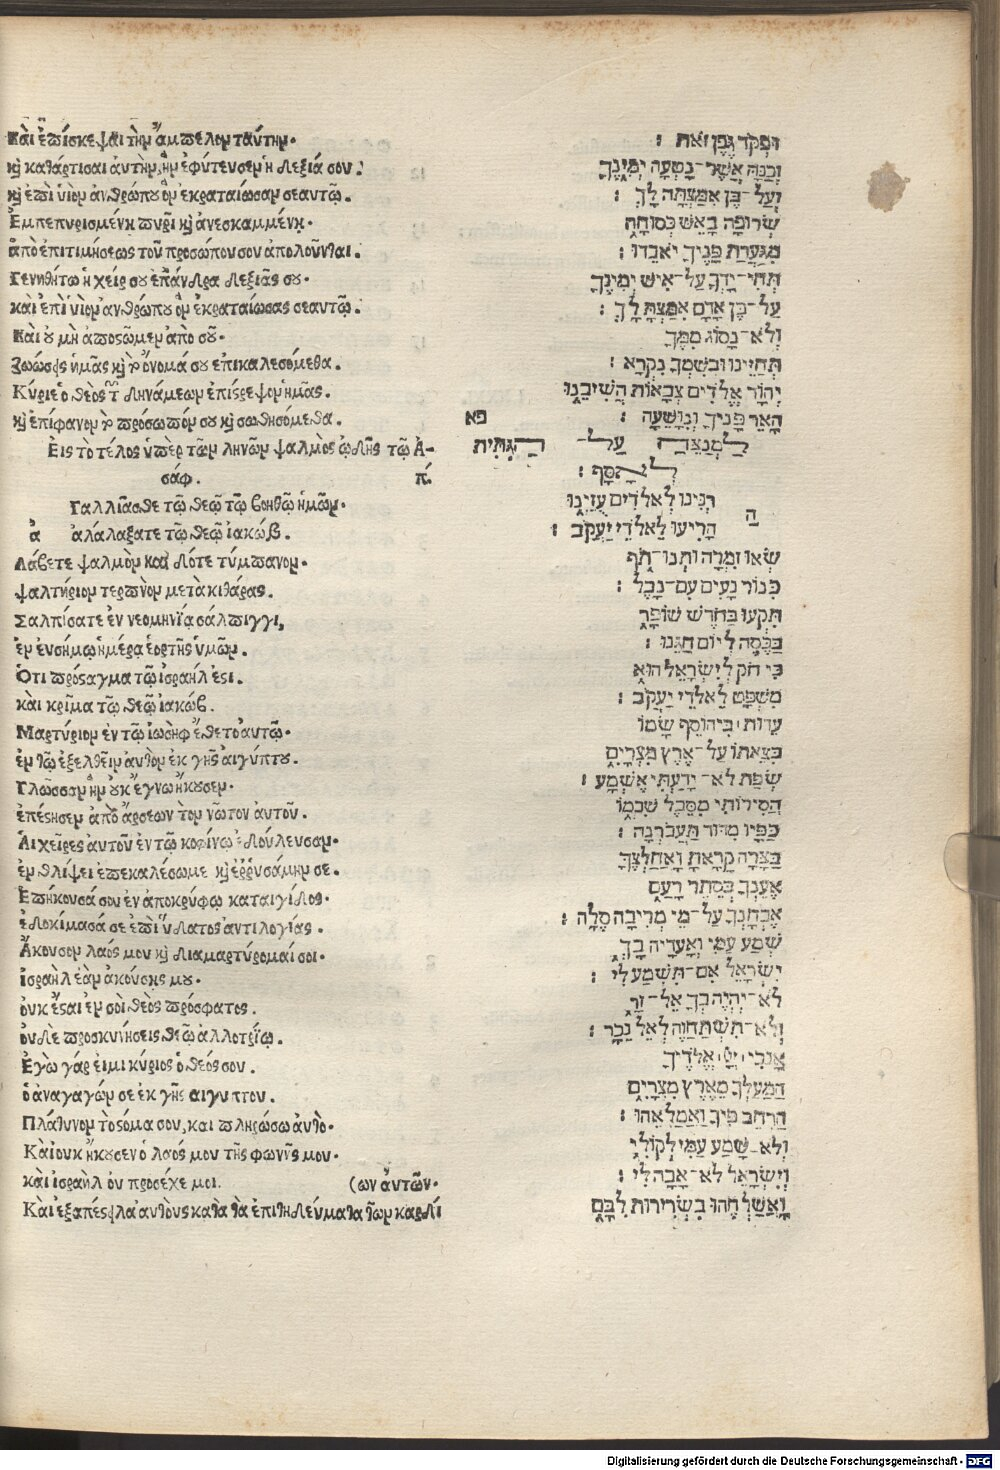 Καὶ ἐπίσκεψαι τὴν ἄμπελον ταύτην.
κỳ κατάρτισαι αὐτὴν, ἣν ἐφύτευσεν ἡ δεξιά σου.
κỳ ἐπὶ υἱὸν ἀνθρώπου ὃν ἐκραταίωσας σεαυτῷ.
Ἐμπεπυρισμένη πυρὶ κỳ ἀνεσκαμμένη.
ἀπὸ ἐπιτιμήσεως τοῦ προσώπου σου ἀπολοῦνται.
Γενηθήτω ἡ χείρ σου ἐπ' ἄνδρα δεξιᾶς σου.
καὶ ἐπὶ υἱὸν ἀνθρώπου ὃν ἐκραταίωσας σεαυτῷ.
Καὶ οὐ μὴ ἀποστῶμεν ἀπὸ σοῦ.
ζωώσεις ἡμᾶς κỳ τὸ ὄνομά σου ἐπικαλεσόμεθα.
Κύριε ὁ θεὸς τῶν δυνάμεων ἐπίστρεψον ἡμᾶς.
κỳ ἐπίφανον τὸ πρόσωπόν σου κỳ σωθησόμεθα.
Εἰς τὸ τέλος ὑπὲρ τῶν ληνῶν ψαλμὸς ᾠδῆς τῷ Ἀ-
σάφ. π.
Γαλλιᾶσθε τῷ θεῷ τῷ βοηθῷ ἡμῶν.
ἀ ἀλαλάξατε τῷ θεῷ ἰακώβ.
Λάβετε ψαλμὸν καὶ δότε τύμπανον.
ψαλτήριον τερπνὸν μετὰ κιθάρας.
Σαλπίσατε ἐν νεομηνίᾳ σάλπιγγι,
ἐν εὐσήμῳ ἡμέρᾳ ἑορτῆς ὑμῶν.
Ὅτι πρόσταγμα τῷ ἰσραήλ ἐστι.
καὶ κρῖμα τῷ θεῷ ἰακώβ.
Μαρτύριον ἐν τῷ ἰωσὴφ ἔθετο αὐτῷ.
ἐν τῷ ἐξελθεῖν αὐτὸν ἐκ γῆς αἰγύπτου.
Γλῶσσαν ἣν οὐκ ἔγνω ἤκουσεν.
ἀπέστησεν ἀπὸ ἄρσεων τὸν νῶτον αὐτοῦ.
Αἱ χεῖρες αὐτοῦ ἐν τῷ κοφίνῳ ἐδούλευσαν.
ἐν θλίψει ἐπεκαλέσω με κỳ ἐρρυσάμην σε.
Ἐπήκουσά σου ἐν ἀποκρύφῳ καταιγίδος.
ἐδοκίμασά σε ἐπὶ ὕδατος ἀντιλογίας.
Ἄκουσον λαός μου κỳ διαμαρτύρομαί σοι.
ἰσραὴλ ἐὰν ἀκούσῃς μου.
οὐκ ἔσται ἐν σοὶ θεὸς πρόσφατος.
οὐδὲ προσκυνήσεις θεῷ ἀλλοτρίῳ.
Ἐγὼ γάρ εἰμι κύριος ὁ θεός σου.
ὁ ἀναγαγών σε ἐκ γῆς αιγυπτου.
Πλάτυνον τὸ στόμα σου, καὶ πληρώσω αὐτό.
Καὶ οὐκ ἤκουσεν ὁ λαός μου τῆς φωνῆς μου.
καὶ ἰσραὴλ οὐ προσέχε μοι. (ων αὐτῶν.
Καὶ ἐξαπέστειλα αὐτοὺς κατὰ τὰ ἐπιτηδεύματα τῶν καρδι
וּפְקֹד גֶּפֶן זֹאת ׃
וְכַנָּה אֲשֶׁר־נָטְעָה יְמִינֶךָ
וְעַל־בֵּן אִמַּצְתָּה לָּךְ ׃
שְׂרוּפָה בָאֵשׁ כְּסוּחָה
מִגַּעֲרַת פָּנֶיךָ יֹאבֵדוּ ׃
תְּהִי־יָדְךָ עַל־אִישׁ יְמִינֶךָ
עַל־בֶּן אָדָם אִמַּצְתָּ לָּךְ ׃
וְלֹא־נָסוֹג מִמֶּךָּ
תְּחַיֵּינוּ וּבְשִׁמְךָ נִקְרָא ׃
יְהוָֹה אֱלֹדִים צְבָאוֹת הֲשִׁיבֵנוּ
הָאֵר פָּנֶיךָ וְנִוָּשֵׁעָה ׃ פא
לַמְנַצֵּחַ עַל־הַגִּתִּית
לְאָסָף ׃
רְנִּינוּ לֵאלֹדִים עֻזֵּינוּ
הָ הָרִיעוּ לֵאלֹדֵי יַעֲקֹב ׃
שְׂאוּ זִמְרָה וּתְנוּ־תֹף
כִּנּוֹר נָעִים עִם־נָבֶל ׃
תִּקְעוּ בַחֹדֶשׁ שׁוֹפָר
בַּכֵּסֶה לְיוֹם חַגֵּנוּ ׃
כִּי חֹק לְיִשְׂרָאֵל הוּא
מִשְׁפָּט לֵאלֹדֵי יַעֲקֹב ׃
עֵדוּת בִּיהוֹסֵף שָׂמוֹ
בְּצֵאתוֹ עַל־אֶרֶץ מִצְרָיִם
שְׂפַת לֹא־יָדַעְתִּי אֶשְׁמָע ׃
הֲסִירוֹתִי מִסֵּבֶל שִׁכְמוֹ
כַּפָּיו מִדּוּד תַּעֲבֹרְנָה ׃
בַּצָּרָה קָרָאתָ וָאֲחַלְּצֶךָּ
אֶעֶנְךָ בְּסֵתֶר רַעַם
אֶבְחָנְךָ עַל־מֵי מְרִיבָה סֶלָה ׃
שְׁמַע עַמִּי וְאָעִידָה בָּךְ
יִשְׂרָאֵל אִם־תִּשְׁמַע לִי ׃
לֹא־יִהְיֶה בְךָ אֵל־זָר
וְלֹא־תִשְׁתַּחֲוֶה לְאֵל נֵכָר ׃
אָנֹכִי יְיָ אֱלֹדֶיךָ
הַמַּעַלְךָ מֵאֶרֶץ מִצְרָיִם
הַרְחֶב פִּיךָ וַאֲמַלְאֵהוּ ׃
וְלֹא־שָׁמַע עַמִּי לְקוֹלִי
וְיִשְׂרָאֵל לֹא־אָבָה לִי ׃
וָאֲשַׁלְּחֵהוּ בִּשְׁרִירוּת לִבָּם
Digitalisierung gefördert durch die Deutsche Forschungsgemeinschaft - DFG